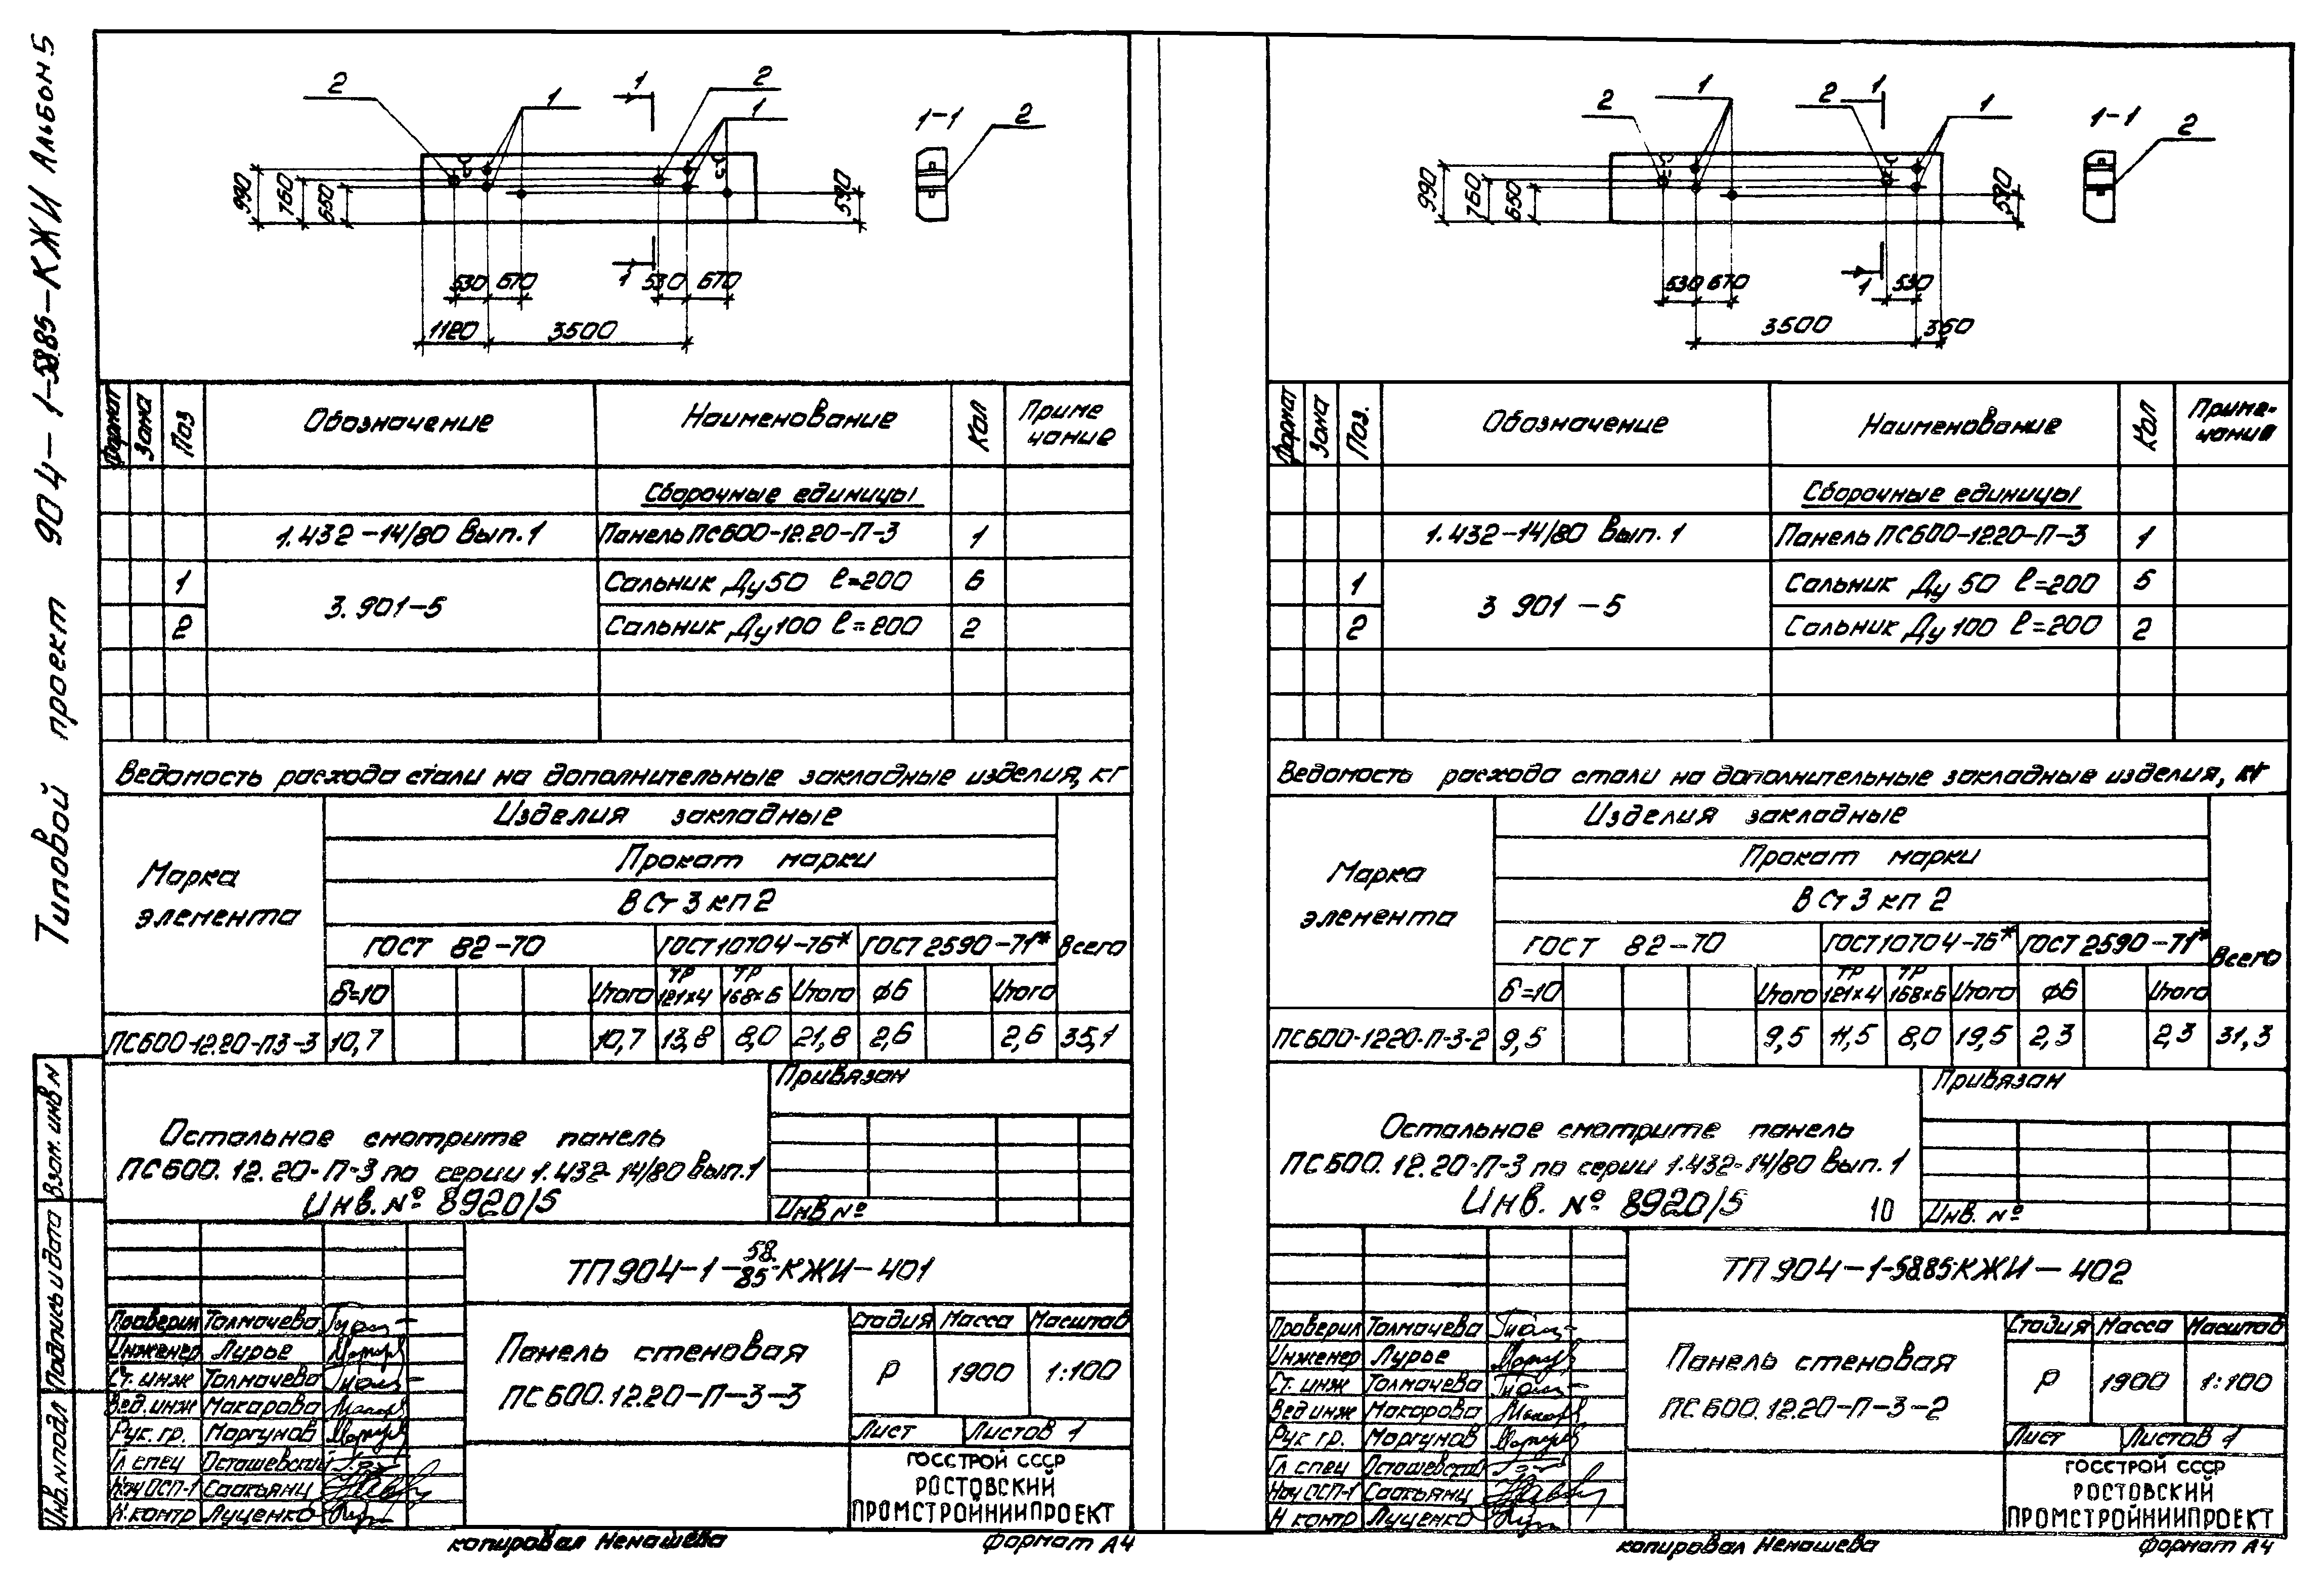 Типовой проект 904-1-58.85-КЖИ Альбом 5
2
1
1
2
1
1-1
2
990
760
650
590
530
670
1
530
670
1120
3500
Формат
Зона
Поз
Обозначение
Наименование
Кол
Приме
чание
Сборочные единицы
1.432-14/80 Вып.1
Панель ПС600-12.20-П-3
1
1
3.901-5
Сальник Ду50 ℓ=200
6
2
Сальник Ду100 ℓ=200
2
Ведомость расхода стали на дополнительные закладные изделия, кг
Марка
элемента
Изделия закладные
Прокат марки
ВСт3кп2
ГОСТ 82-70
ГОСТ10704-76*
ГОСТ2590-71*
Всего
δ=10
Итого
ТР
121×4
ТР
168×6
Итого
ф6
Итого
ПС600-12.20-П3-3
10,7
10,7
13,8
8,0
21,8
2,6
2,6
35,1
Остальное смотрите панель
ПС600.12.20-П-3 по серии 1.432-14/80 Вып.1
Инв. № 8920/5
Привязан
Инв №
ТП904-1-58.85-КЖИ-401
Проверил Толмачева
Инженер Лурье
Ст. инж Толмачева
Вед. инж Макарова
Рук. гр. Моргунов
Гл спец Осташевский
Нач ОСП-1 Саакьянц
Н. контр Луценко
Панель стеновая
ПС600.12.20-П-3-3
Стадия
Масса
Масштаб
Р
1900
1:100
Лист
Листов 1
ГОССТРОЙ СССР
РОСТОВСКИЙ
ПРОМСТРОЙНИИПРОЕКТ
копировал Ненашева
Формат А4
Взам. инв N
Подпись и дата
Инв. N подл
2
1
2
1
1
1-1
2
990
760
650
590
530
670
1
530
3500
350
Формат
Зона
Поз.
Обозначение
Наименование
Кол
Приме-
чание
Сборочные единицы
1.432-14/80 Вып.1
Панель ПС600-12.20-П-3
1
1
3 901-5
Сальник Ду 50 ℓ=200
5
2
Сальник Ду 100 ℓ=200
2
Ведомость расхода стали на дополнительные закладные изделия, кг
Марка
элемента
Изделия закладные
Прокат марки
ВСт3кп2
ГОСТ 82-70
ГОСТ10704-76*
ГОСТ2590-71*
Всего
δ=10
Итого
ТР
121×4
ТР
168×6
Итого
ф6
Итого
ПС600-12.20-П-3-2
9,5
9,5
11,5
8,0
19,5
2,3
2,3
31,3
Остальное смотрите панель
ПС600.12.20-П-3 по серии 1.432-14/80 Вып.1
Инв. № 8920/5
10
Привязан
Инв. №
ТП904-1-58.85-КЖИ-402
Проверил Толмачева
Инженер Лурье
Ст. инж Толмачева
Вед инж Макарова
Рук гр. Моргунов
Гл спец Осташевский
Нач ОСП-1 Саакьянц
Н контр Луценко
Панель стеновая
ПС600.12.20-П-3-2
Стадия
Масса
Масштаб
Р
1900
1:100
Лист
Листов 1
ГОССТРОЙ СССР
РОСТОВСКИЙ
ПРОМСТРОЙНИИПРОЕКТ
копировал Ненашева
Формат А4